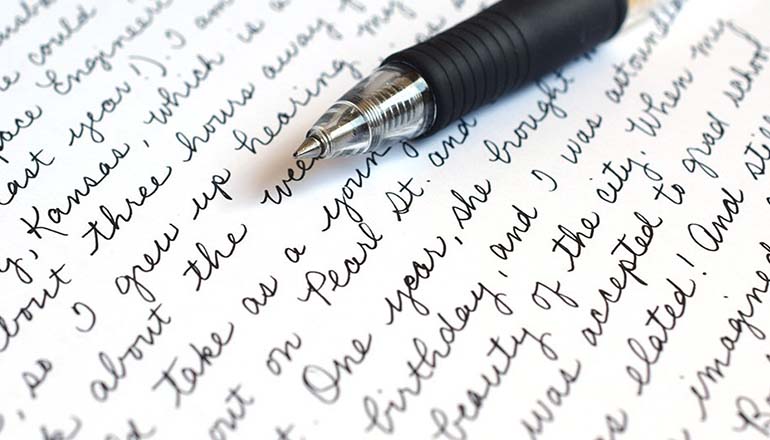 could
Engineeri
last year!). I am
Kansas, which is a
about three hours away
, so I grew up hearing my
about the
take as a young
out on Pearl St. and
One year, she brought
birthday, and I was
beauty of the city. When my
was accepted to grad school
elated! And still
imagined